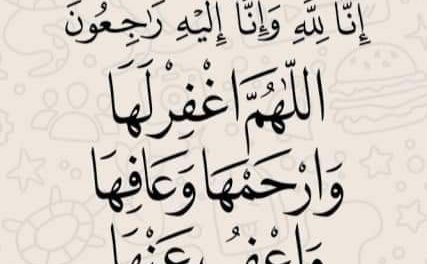 إِنَّا لِلَّهِ وَإِنَّا إِلَيْهِ رَاجِعُونَ
اللَّهُمَّ اغْفِرْ لَهَا
وَارْحَمْهَا وَعَافِهَا
وَاعْفُ عَنْهَا